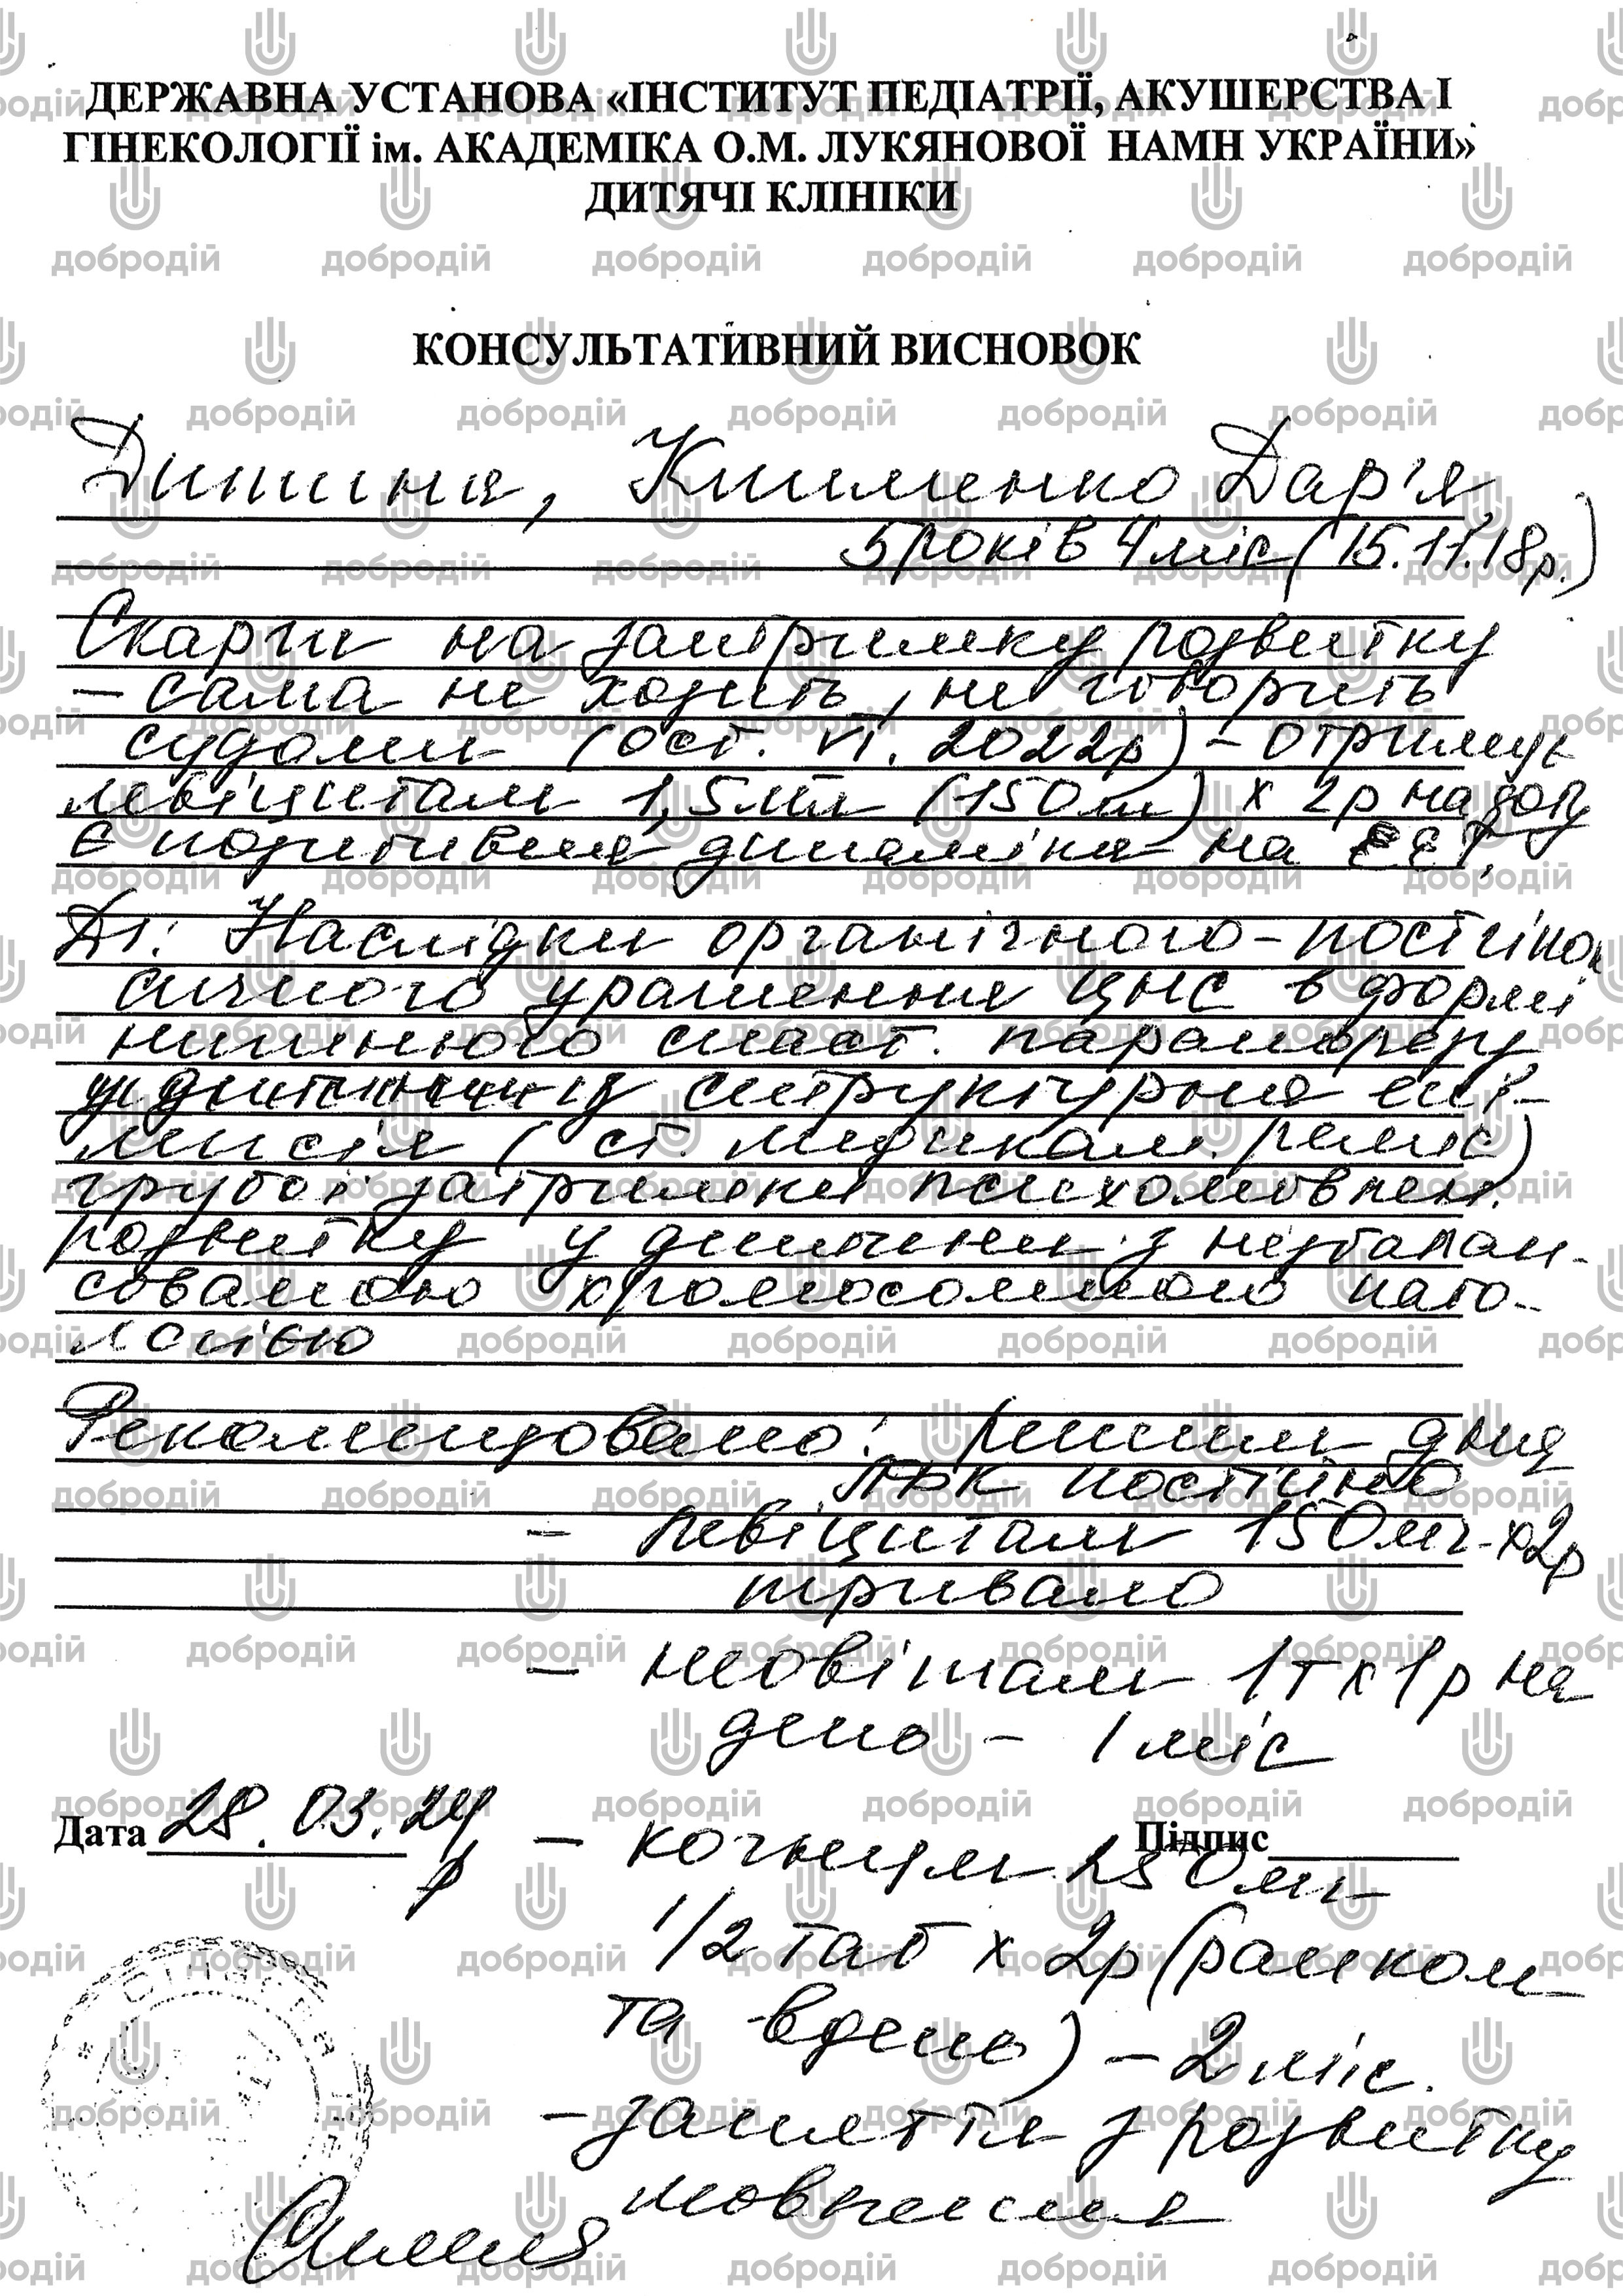 ДЕРЖАВНА УСТАНОВА «ІНСТИТУТ ПЕДІАТРІЇ, АКУШЕРСТВА І
ГІНЕКОЛОГІЇ ім. АКАДЕМІКА О.М. ЛУКЯНОВОЇ НАМН УКРАЇНИ»
ДИТЯЧІ КЛІНІКИ
КОНСУЛЬТАТИВНИЙ ВИСНОВОК
Дитина, Клименко Дар'я
5 років 4 міс (15.11.18р.)
Скарги на затримку розвитку
– сама не ходить, не говорить
судоми (ост. VI. 2022р) – отримує
левіцитам 1,5мл (150мг) х 2р на добу
Є позитивна динаміка на ЕЕГ.
Ds: Наслідки органічного-постгіпок
сичного ураження ЦНС в формі
нижнього спаст. парапарезу
структурна епі-
лепсія (ст. медикам. реміс)
грубої затримки психомовлен.
розвитку у дитини з незбалан-
сованою хромосомною пато-
логією
Рекомендовано: режим дня
ЛФК постійно
– левіцитам 150мг х 2р
тривало
– неовітам 1т х 1р на
день – 1 міс
Дата 28.03.24 р
Підпис
– когніум 250мг
1/2 таб х 2р (ранком
та вдень) – 2 міс.
– заняття з розвитку
мовлення
добродій